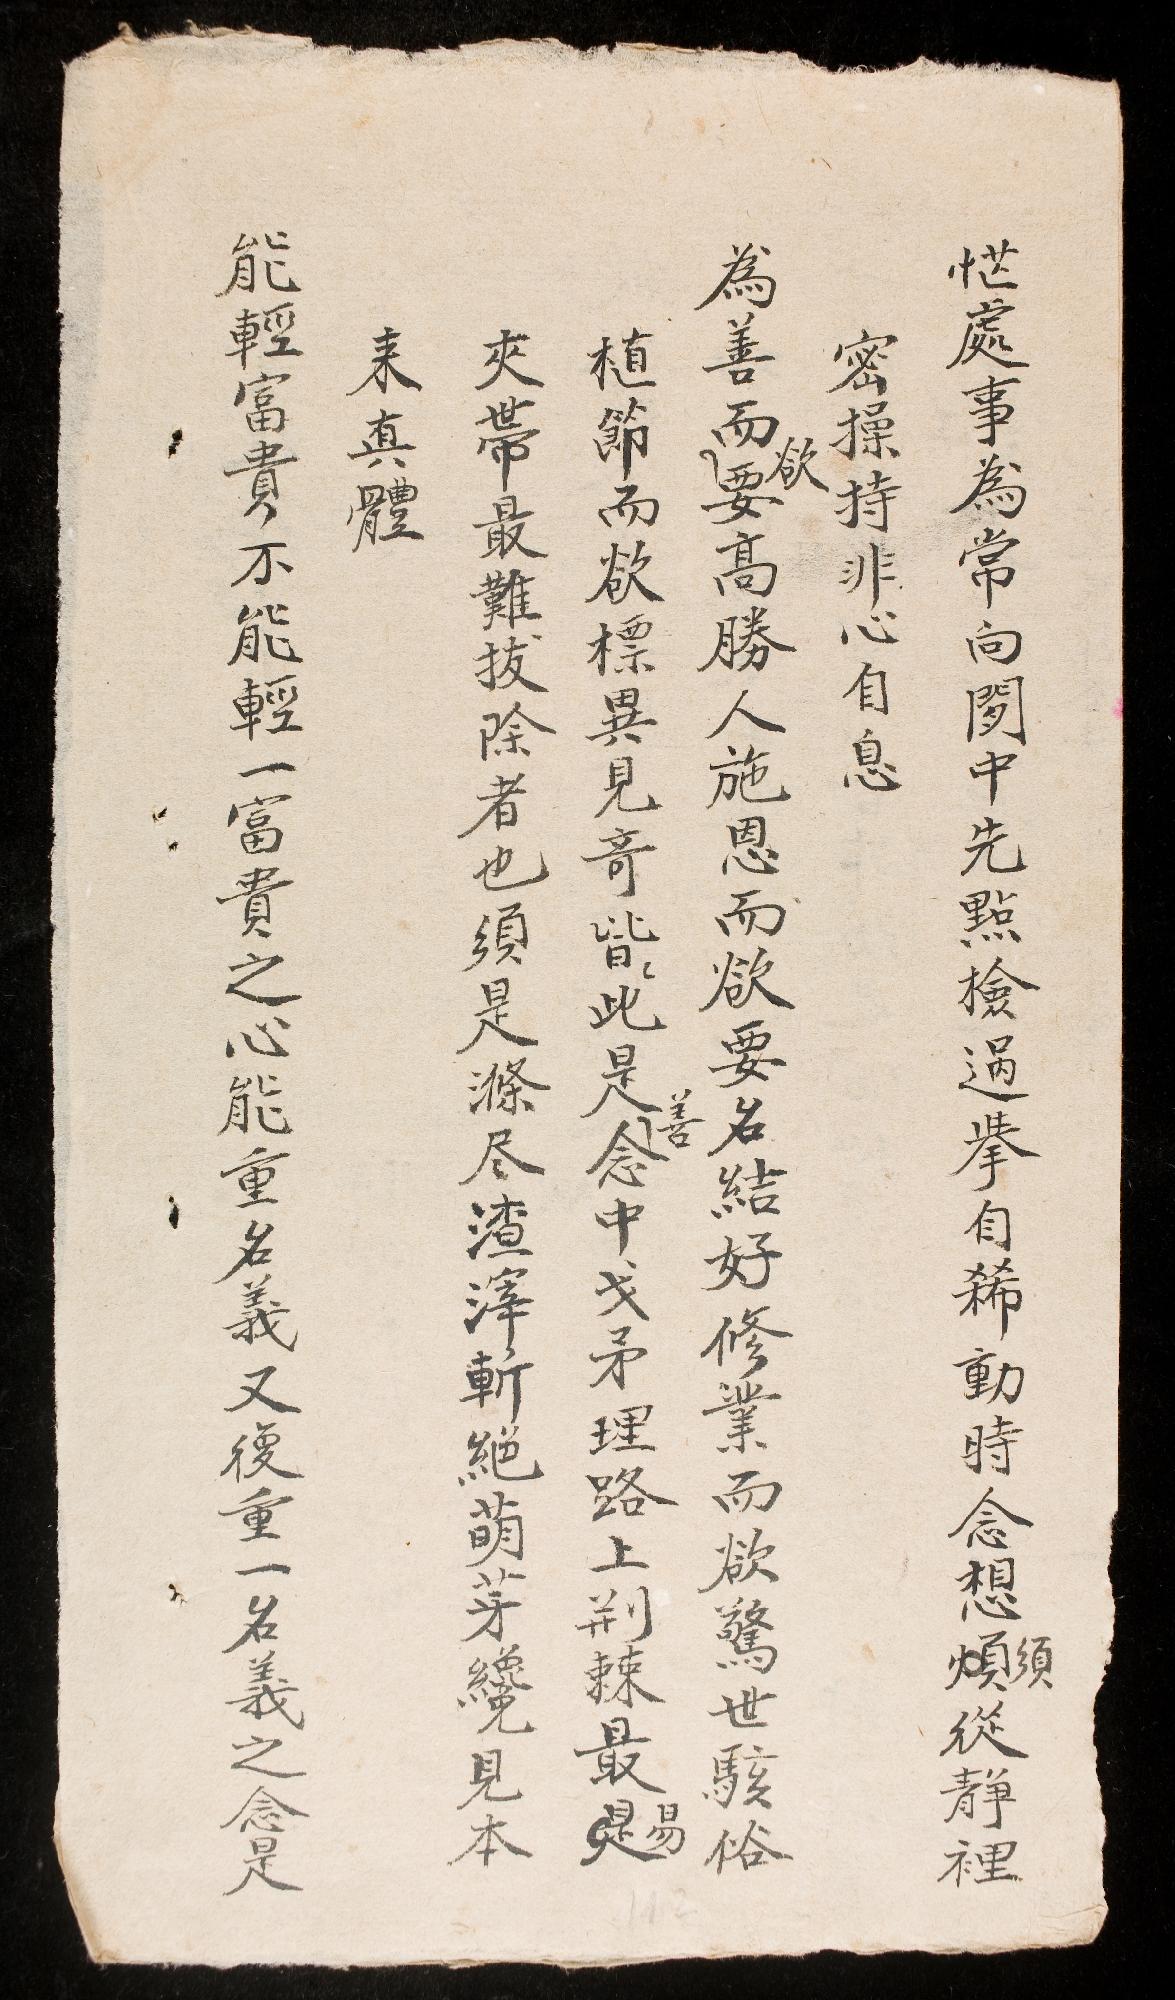 恾處事為常向閒中先點檢過擧自稀動時念想煩須從靜裡
密操持非心自息
為善而要欲高勝人施恩而欲要名結好修業而欲驚世駭俗
植節而欲標異見竒皆此是念善中戈矛理路上荆棘最是易
夾帶最難拔除者也須是滌尽渣滓斬絕萌芽纔見本
来真體
能輕富貴不能輕一富貴之心能重名義又復重一名義之念是